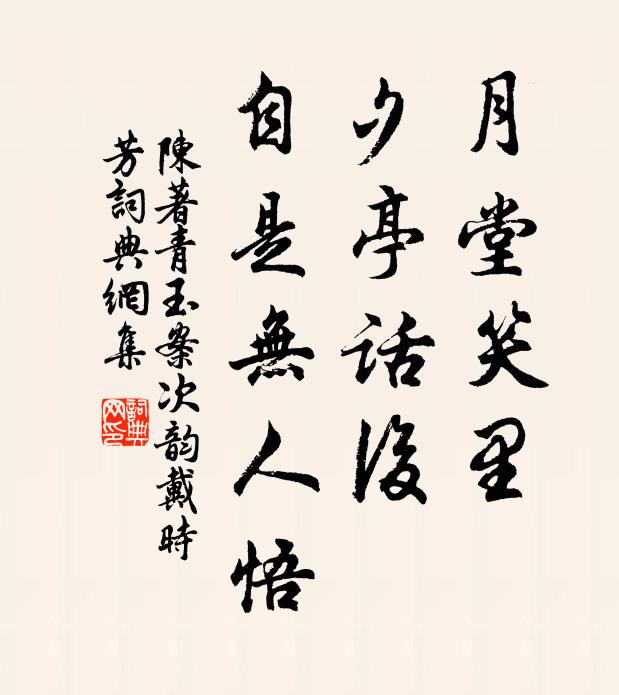 月堂笑里
夕亭話後
自是無人悟
陳著青玉案次韵戴時
芳詞典網集
詞典网印